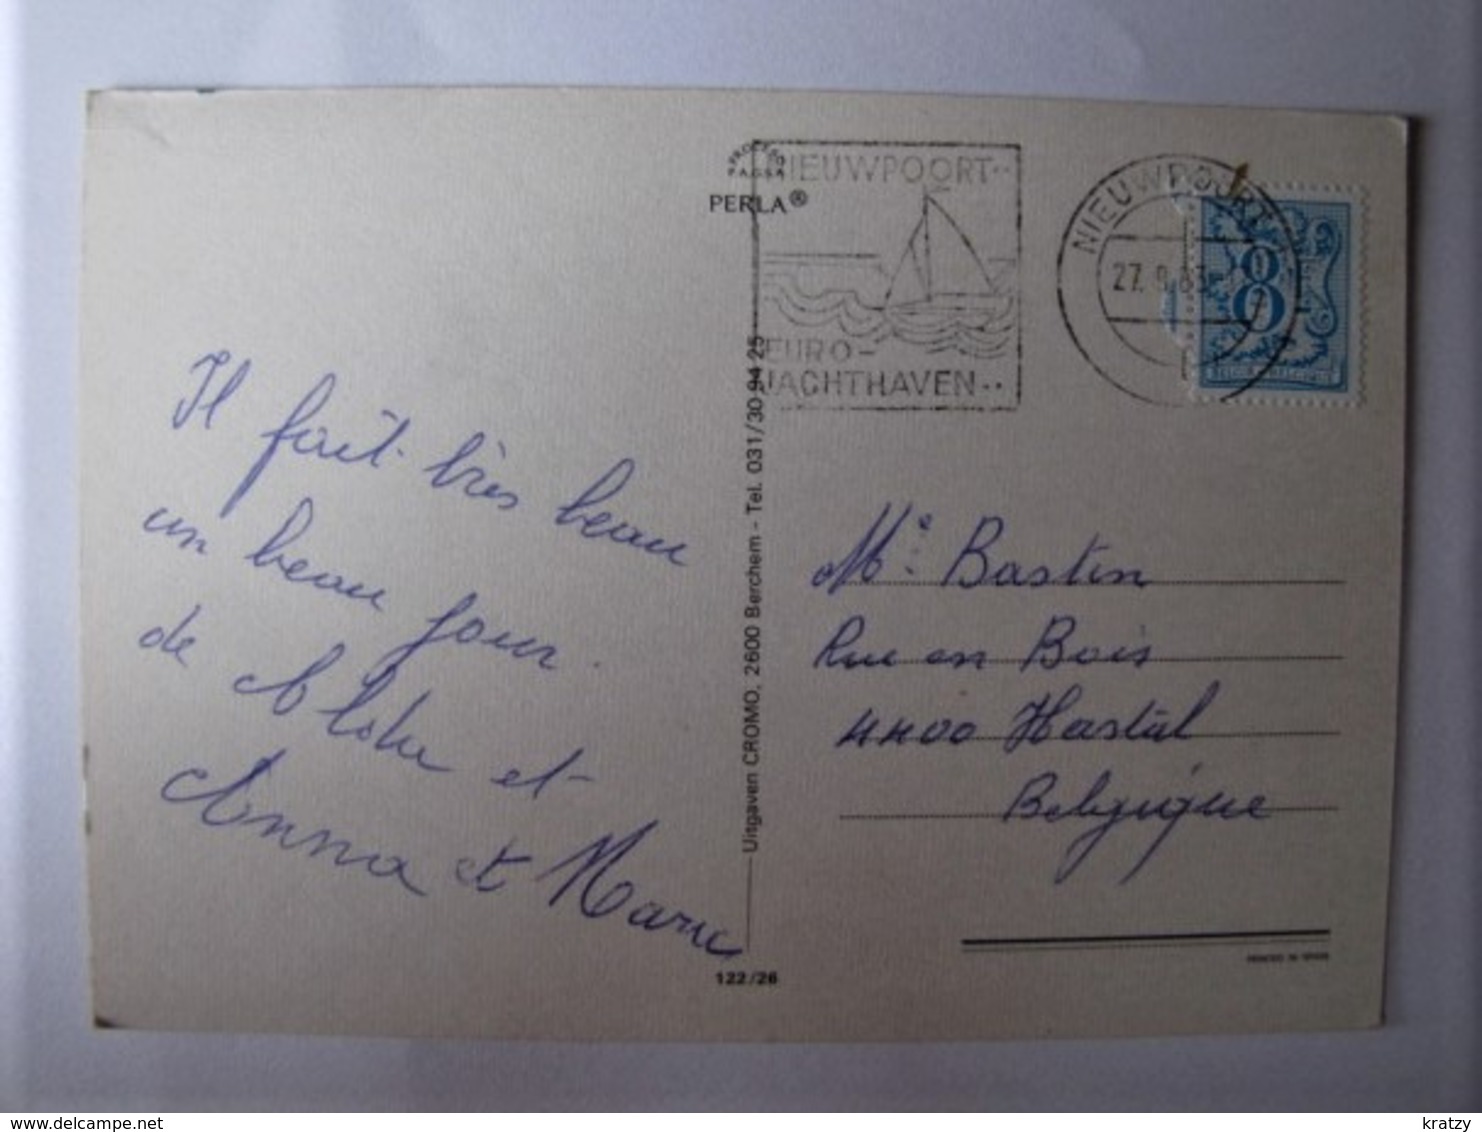 PROCESO
FAGSA
PERLA®
NIEUWPOORT..
EURO-
JACHTHAVEN..
NIEUWPOORT
27.
8
Il fait très beau
un beau jour
de et
Anna et Marie
Uitgaven CROMO, 2600 Berchem - Tel. 031/30 94 25
122/26
Me. Bastin
Rue en Bois
4400
Belgique
PRINTED IN SPAIN
delcampe.net
kratzy